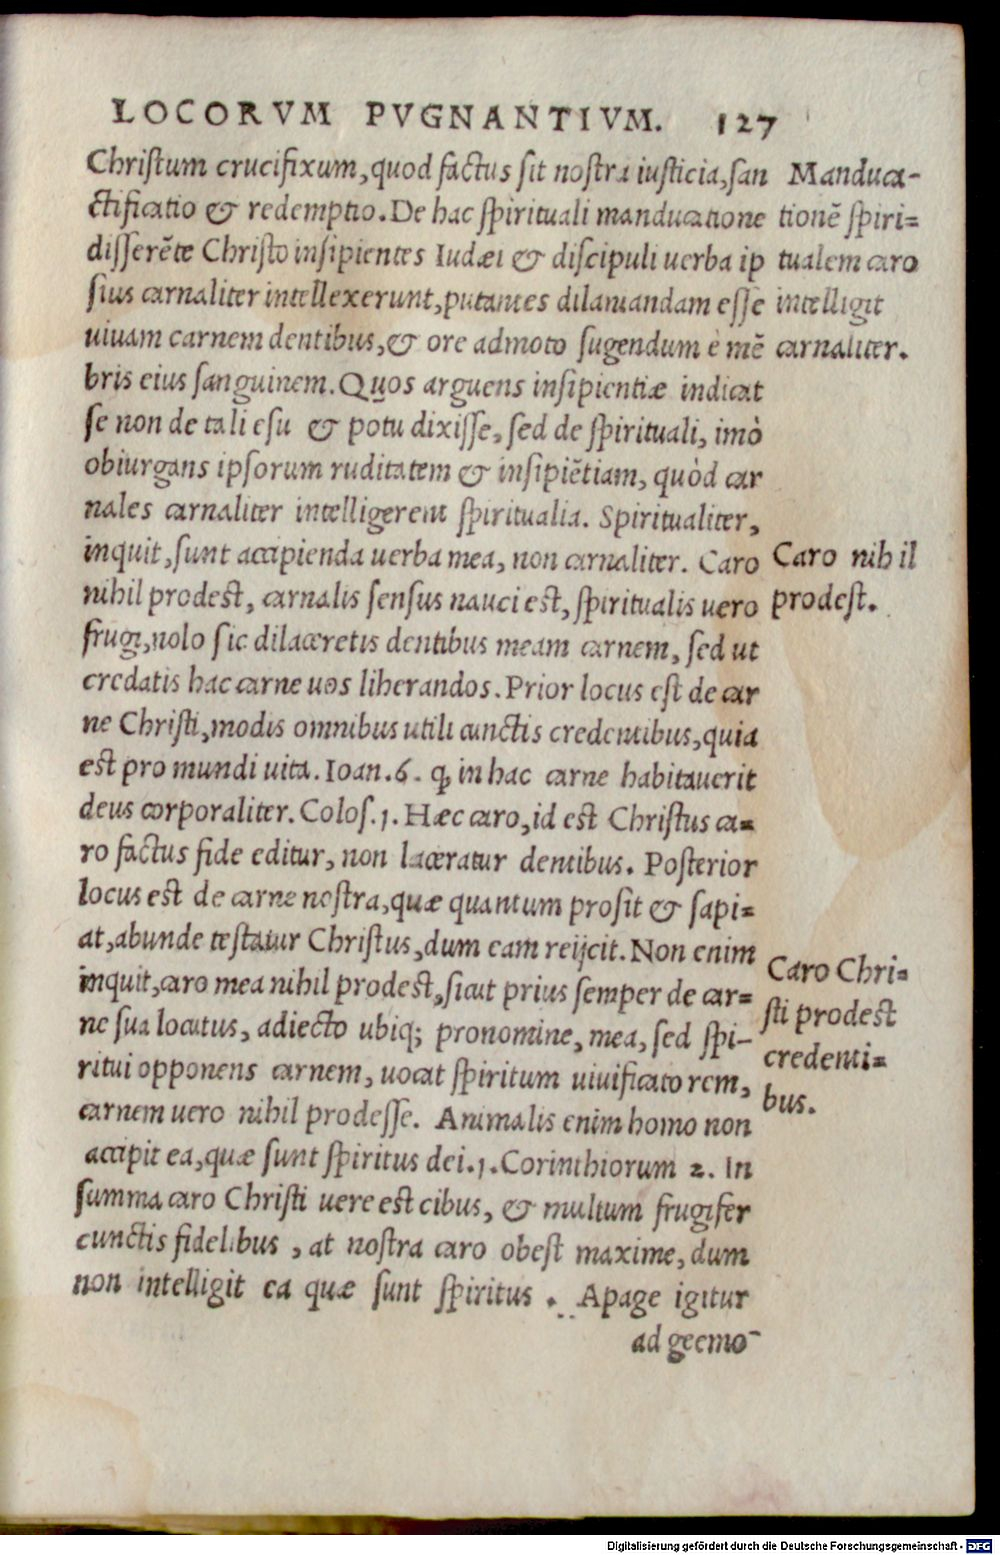 LOCORVM PVGNANTIVM. 127
Christum crucifixum, quod factus sit nostra iusticia, san
ctificatio & redemptio. De hac spirituali manducatione
disserēte Christo insipientes Iudæi & discipuli uerba ip
sius carnaliter intellexerunt, putantes dilaniandam esse
uiuam carnem dentibus, & ore admoto sugendum è mē
bris eius sanguinem. Quos arguens insipientiæ indicat
se non de tali esu & potu dixisse, sed de spirituali, imò
obiurgans ipsorum ruditatem & insipiētiam, quòd car
nales carnaliter intelligerent spiritualia. Spiritualiter,
inquit, sunt accipienda uerba mea, non carnaliter. Caro
nihil prodest, carnalis sensus nauci est, spiritualis uero
frugi, nolo sic dilaceretis dentibus meam carnem, sed ut
credatis hac carne uos liberandos. Prior locus est de car
ne Christi, modis omnibus utili cunctis credentibus, quia
est pro mundi uita. Ioan. 6. ꝙ in hac carne habitauerit
deus corporaliter. Colos. 1. Hæc caro, id est Christus ca=
ro factus fide editur, non laceratur dentibus. Posterior
locus est de carne nostra, quæ quantum prosit & sapi=
at, abunde testatur Christus, dum eam reijcit. Non enim
inquit, caro mea nihil prodest, sicut prius semper de car=
ne sua locutus, adiecto ubiq; pronomine, mea, sed spi-
ritui opponens carnem, uocat spiritum uiuificatorem,
carnem uero nihil prodesse. Animalis enim homo non
accipit ea, quæ sunt spiritus dei. 1. Corinthiorum 2. In
summa caro Christi uere est cibus, & multum frugifer
cunctis fidelibus, at nostra caro obest maxime, dum
non intelligit ea quæ sunt spiritus. Apage igitur
ad geemo-
Manduca-
tionē spiri=
tualem caro
intelligit
carnaliter.
Caro nihil
prodest.
Caro Chri=
sti prodest
credenti=
bus.
Digitalisierung gefördert durch die Deutsche Forschungsgemeinschaft - DFG